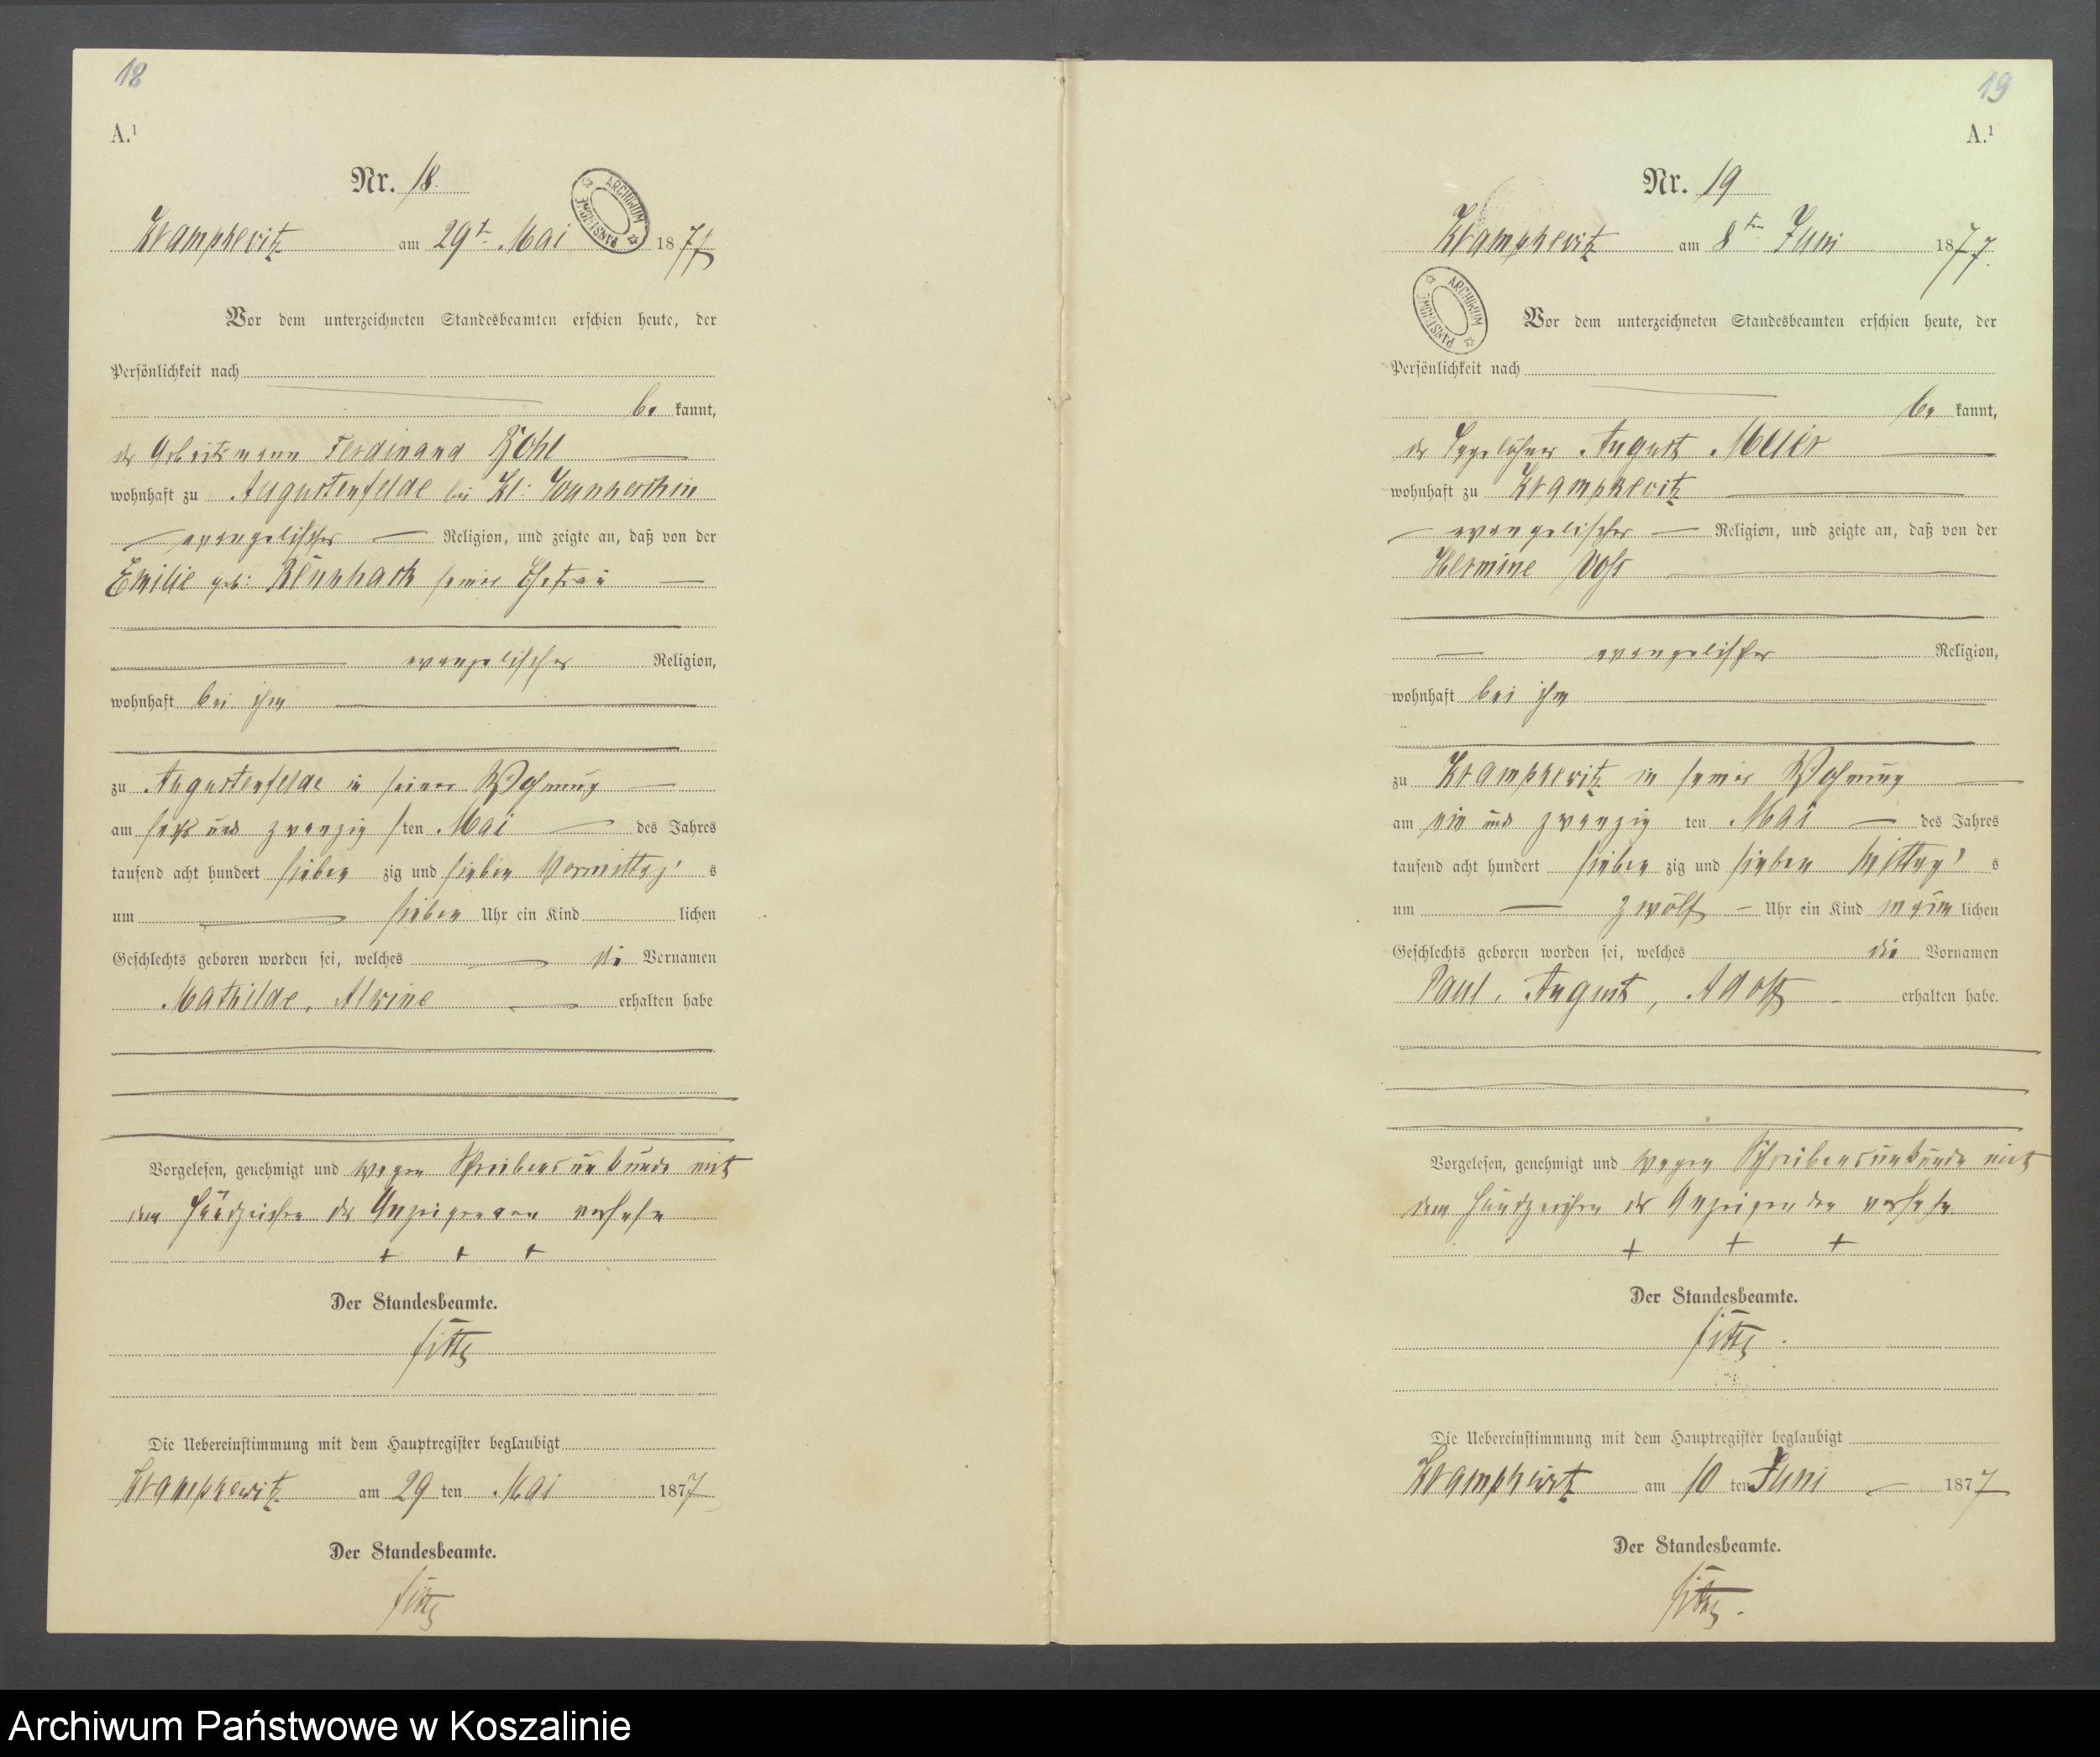 18
A.¹
Nr. 18.
ARCHIWUM PAŃSTWOWE
Krampkewitz am 29t. Mai 1877
Vor dem unterzeichneten Standesbeamten erschien heute, der
Persönlichkeit nach
be kannt,
der Arbeitsmann Ferdinand
wohnhaft zu Augustenfelde bei Kl:
evangelischer Religion, und zeigte an, daß von der
Emilie geb: seiner Ehefrau
evangelischer Religion,
wohnhaft bei ihm
zu Augustenfelde in seiner Wohnung
am sechs und zwanzigsten Mai des Jahres
tausend acht hundert sieben zig und sieben Vormittags
um sieben Uhr ein Kind lichen
Geschlechts geboren worden sei, welches die Vornamen
Mathilde, Alwine erhalten habe
Vorgelesen, genehmigt und wegen Schreibensunkunde mit
dem Handzeichen des Anzeigenden versehen
+ + +
Der Standesbeamte.
Die Uebereinstimmung mit dem Hauptregister beglaubigt
Krampkewitz am 29 ten Mai 1877
Der Standesbeamte.
19
A.¹
Nr. 19
Krampkewitz am 8ten Juni 1877.
ARCHIWUM PAŃSTWOWE
Vor dem unterzeichneten Standesbeamten erschien heute, der
Persönlichkeit nach
be kannt,
der Tagelöhner August Meier
wohnhaft zu Krampkewitz
evangelischer Religion, und zeigte an, daß von der
Hermine Voss
evangelischer Religion,
wohnhaft bei ihm
zu Krampkewitz in seiner Wohnung
am ein und zwanzig ten Mai des Jahres
tausend acht hundert sieben zig und sieben Mittags
um zwölf Uhr ein Kind männlichen
Geschlechts geboren worden sei, welches die Vornamen
Paul, August, Adolf erhalten habe.
Vorgelesen, genehmigt und wegen Schreibensunkunde mit
dem Handzeichen des Anzeigenden versehen
+ + +
Der Standesbeamte.
Die Uebereinstimmung mit dem Hauptregister beglaubigt
Krampkewitz am 10 ten Juni 1877
Der Standesbeamte.
Archiwum Państwowe w Koszalinie